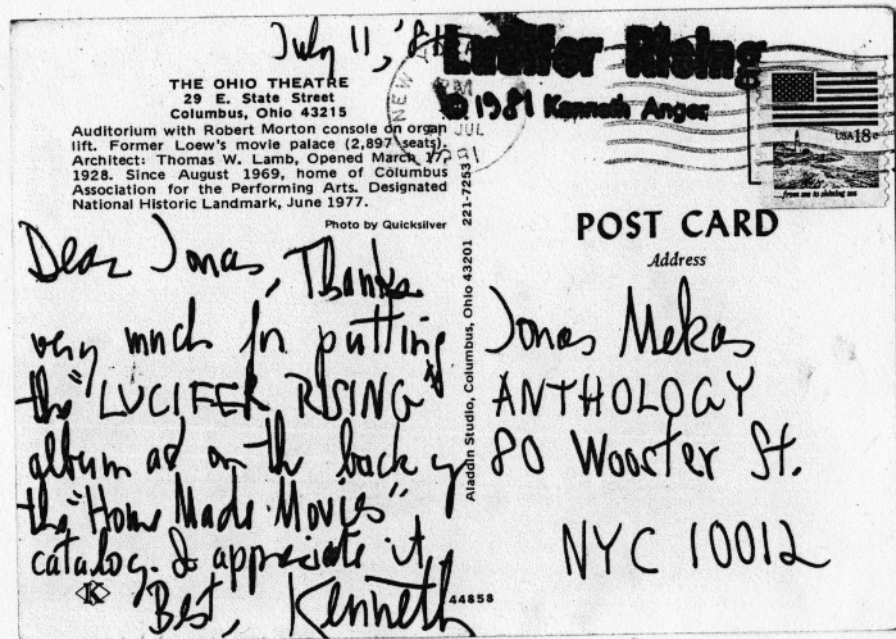 July 11, '81
Lucifer Rising
© 1981 Kenneth Anger
NEW Y
PM
JUL
1981
USA 18c
...from sea to shining sea
THE OHIO THEATRE
29 E. State Street
Columbus, Ohio 43215
Auditorium with Robert Morton console on organ
lift. Former Loew's movie palace (2,897 seats).
Architect: Thomas W. Lamb, Opened March 17,
1928. Since August 1969, home of Columbus
Association for the Performing Arts. Designated
National Historic Landmark, June 1977.
Photo by Quicksilver
Dear Jonas, Thanks
very much for putting
the "LUCIFER RISING"
album ad on the back of
the "Home Made Movies"
catalog. I appreciate it
Best, Kenneth
K
44858
Aladdin Studio, Columbus, Ohio 43201 221-7253
POST CARD
Address
Jonas Mekas
ANTHOLOGY
80 Wooster St.
NYC 10012